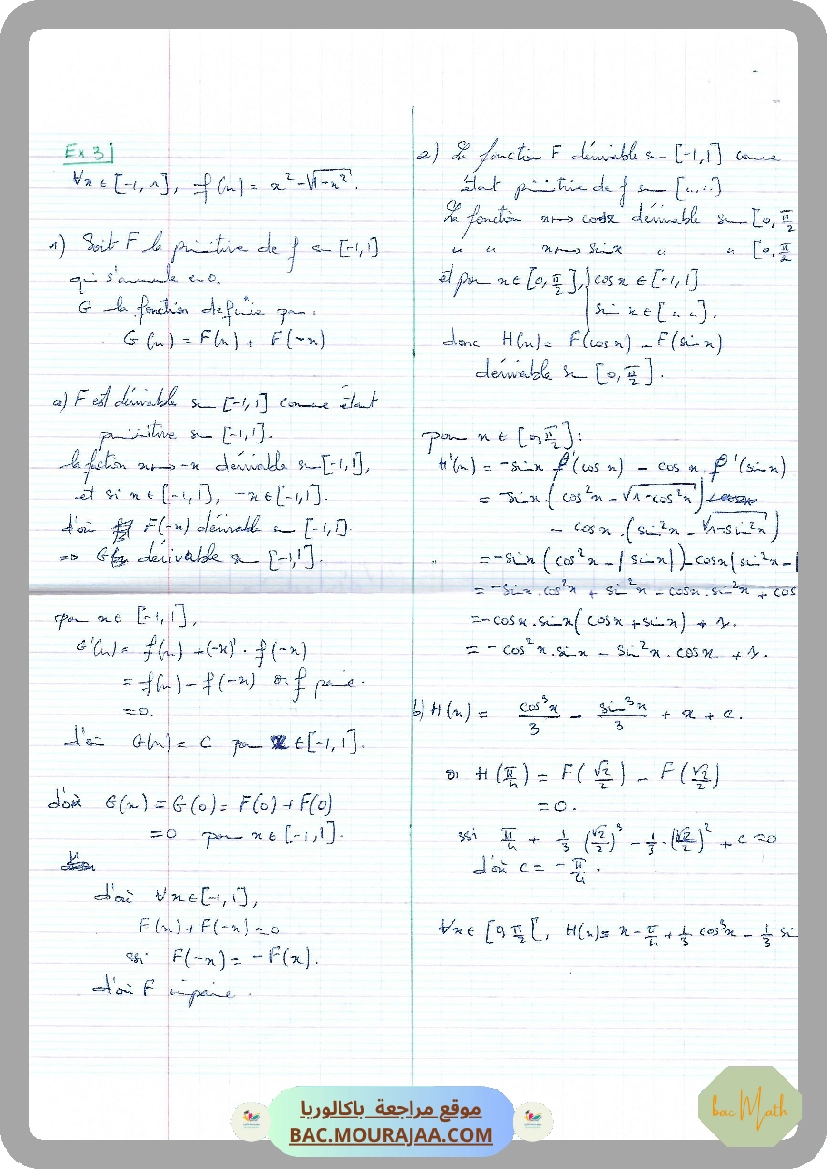 Ex 3
∀x ∈ [-1, 1], f(x) = x² - √(1-x²).
1) Soit F la primitive de f sur [-1,1]
qui s'annule en 0.
G la fonction définie par :
G(x) = F(x) + F(-x)
a) F est dérivable sur [-1,1] comme étant
primitive sur [-1,1].
la fction x ↦ -x dérivable sur [-1,1],
et si x ∈ [-1,1], -x ∈ [-1,1].
d'où F(-x) dérivable sur [-1,1].
=> G dérivable sur [-1,1].
pour x ∈ [-1,1],
G'(x) = f(x) + (-x)' · f(-x)
= f(x) - f(-x) or f paire.
= 0.
d'où G(x) = C pour x ∈ [-1,1].
d'où G(x) = G(0) = F(0) + F(0)
= 0 pour x ∈ [-1,1].
d'où ∀x ∈ [-1,1],
F(x) + F(-x) = 0
ssi F(-x) = -F(x).
d'où F impaire.
2) La fonction F dérivable sur [-1,1] comme
étant primitive de f sur [...]
La fonction x ↦ cosx dérivable sur [0, π/2
" " x ↦ sinx " " [0, π/2
et pour x ∈ [0, π/2], cosx ∈ [-1,1]
sin x ∈ [" "].
donc H(x) = F(cosx) - F(sinx)
dérivable sur [0, π/2].
pour x ∈ [0, π/2] :
H'(x) = -sinx f'(cosx) - cosx. f'(sinx)
= -sinx.(cos²x - √(1-cos²x))
- cosx.(sin²x - √(1-sin²x))
= -sinx (cos²x - |sinx|) - cosx (sin²x - |
= -sinx.cos²x + sin²x - cosx.sin²x + cos
= -cosx.sinx (cosx + sinx) + 1.
= -cos²x.sinx - sin²x.cosx + 1.
b) H(x) = cos³x/3 - sin³x/3 + x + c.
or H(π/4) = F(√2/2) - F(√2/2)
= 0.
ssi π/4 + 1/3 (√2/2)³ - 1/3.(√2/2)² + c = 0
d'où c = -π/4.
∀x ∈ [0, π/2[, H(x) = x - π/4 + 1/3 cos³x - 1/3 si
موقع مراجعة باكالوريا
BAC.MOURAJAA.COM
bac Math